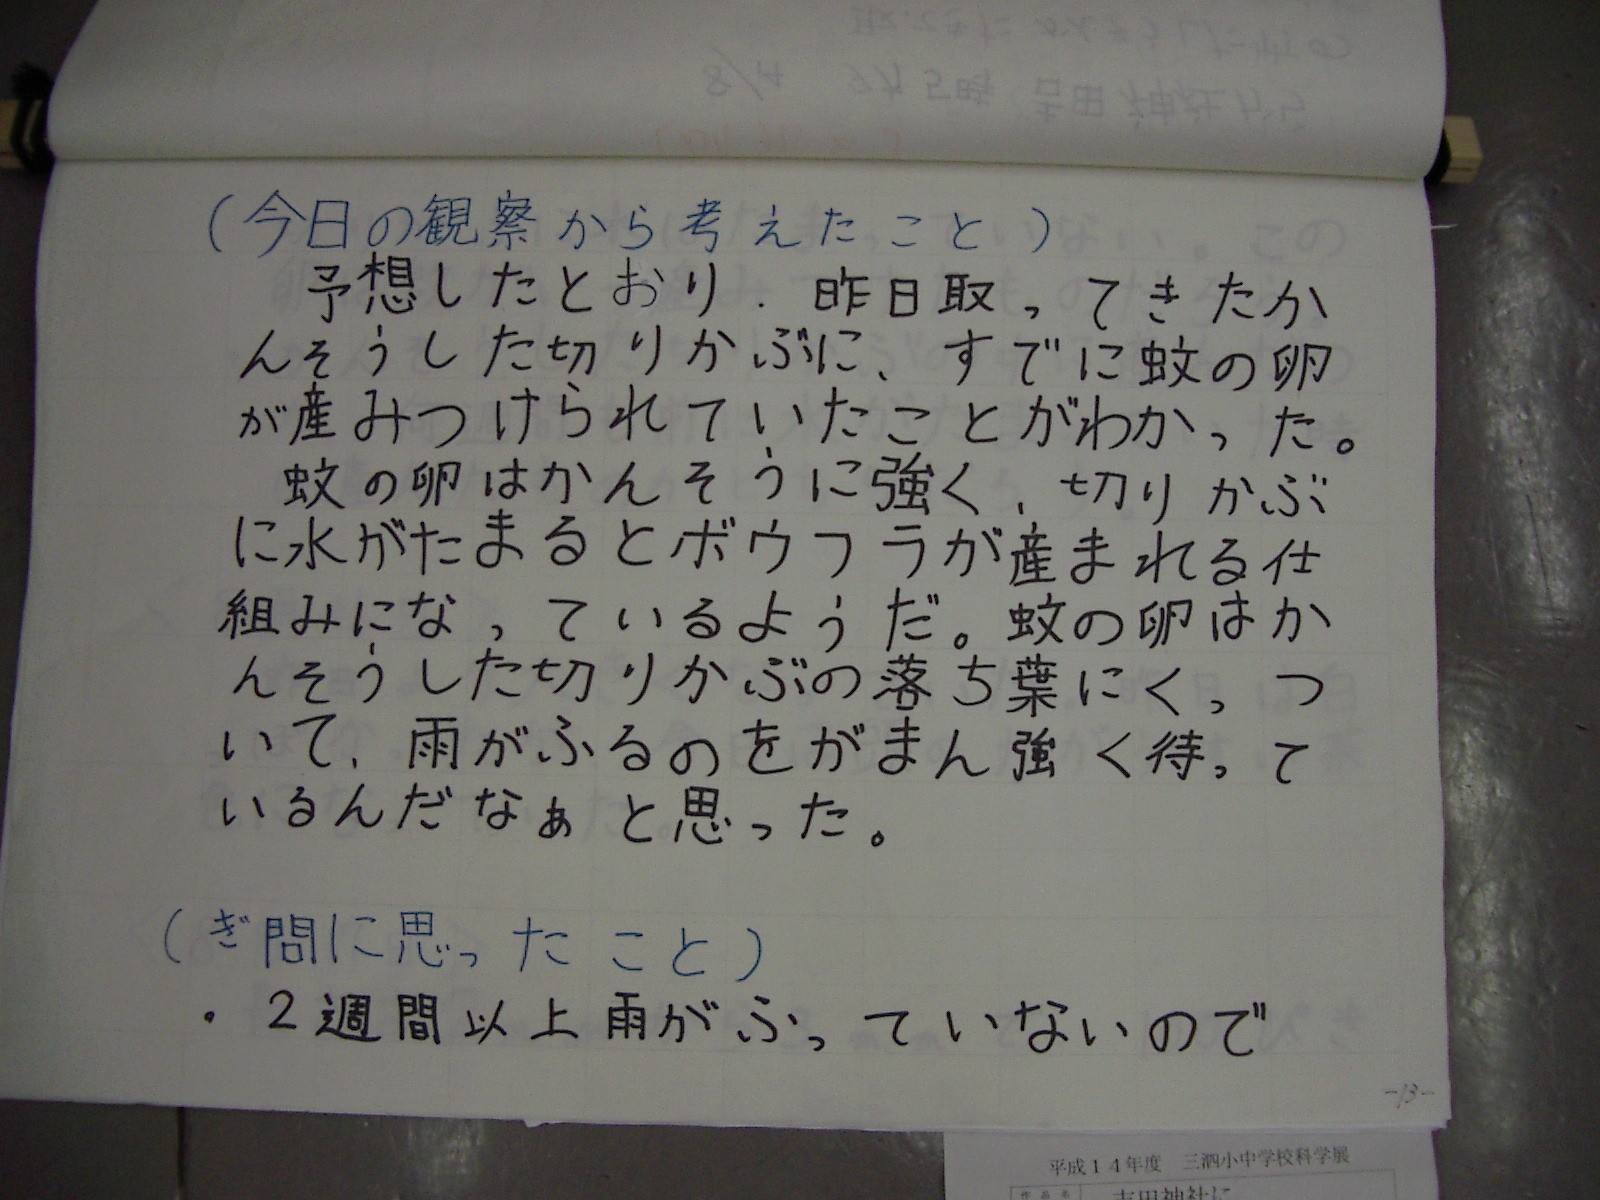 (今日の観察から考えたこと)
予想したとおり、昨日取ってきたか
んそうした切りかぶに、すでに蚊の卵
が産みつけられていたことがわかった。
蚊の卵はかんそうに強く、切りかぶ
に水がたまるとボウフラが産まれる仕
組みになっているようだ。蚊の卵はか
んそうした切りかぶの落ち葉にくっつ
いて、雨がふるのをがまん強く待って
いるんだなぁと思った。
(ぎ問に思ったこと)
・2週間以上雨がふっていないので
-13-
平成14年度 三泗小中学校科学展
吉田神社に